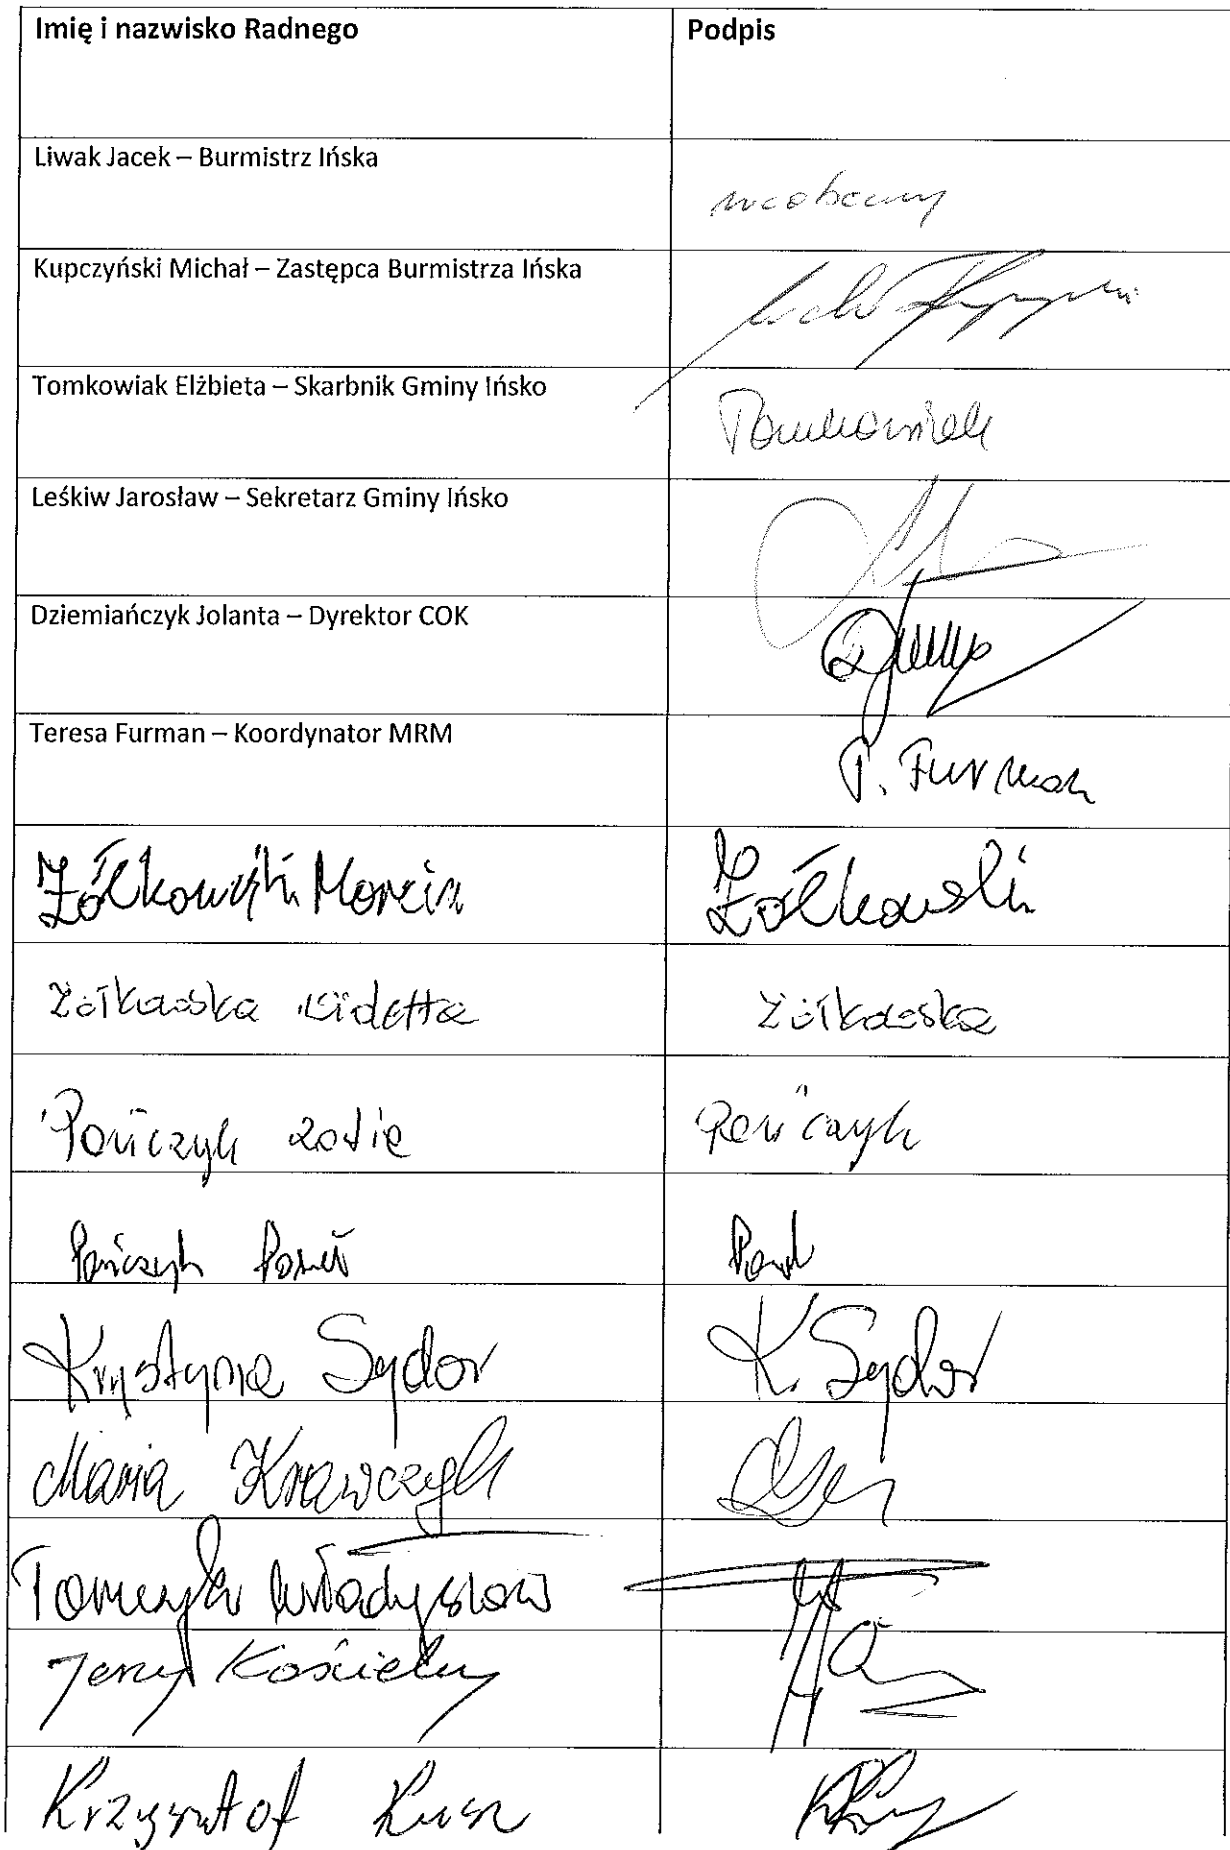 Imię i nazwisko Radnego Podpis
Liwak Jacek – Burmistrz Ińska nieobecny
Kupczyński Michał – Zastępca Burmistrza Ińska
Tomkowiak Elżbieta – Skarbnik Gminy Ińsko Tomkowiak
Leśkiw Jarosław – Sekretarz Gminy Ińsko
Dziemiańczyk Jolanta – Dyrektor COK
Teresa Furman – Koordynator MRM T. Furman
Żółkowski Marcin Żółkowski
Żółkowska Wioletta Żółkowska
Pończyk Zofia Pończyk
Pończyk Paweł
Krystyna Sydor K. Sydor
Maria Krawczyk
Tomczyk Władysław
Jerzy Kościelny
Krzysztof Kusz